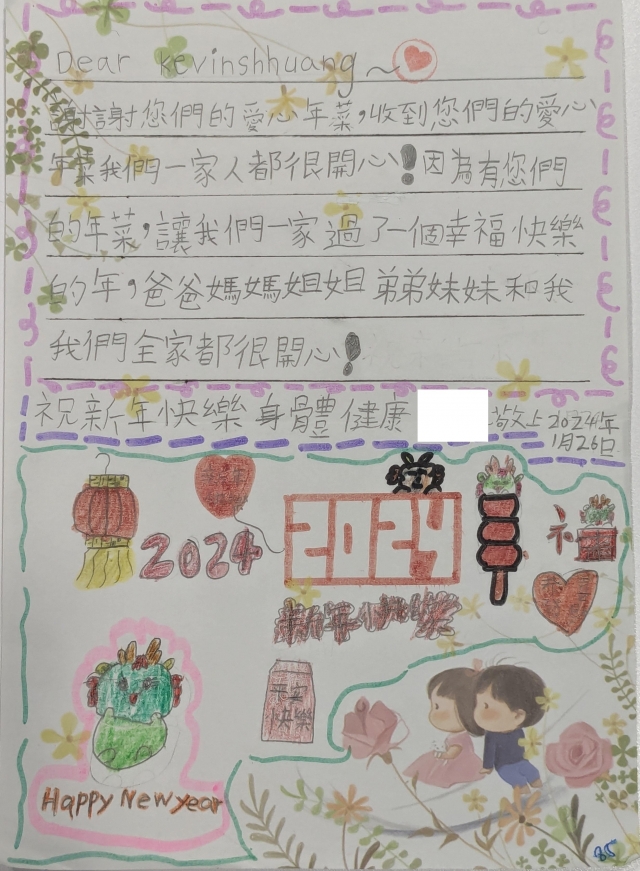 Dear kevinshhuang~
謝謝您們的愛心年菜,收到您們的愛心
年菜我們一家人都很開心!因為有您們
的年菜,讓我們一家過了一個幸福快樂
的年,爸爸媽媽姐姐弟弟妹妹和我
我們全家都很開心!
祝新年快樂身體健康
敬上
2024年
1月26日
2024
2024
新年快樂
快樂
Happy New year
85